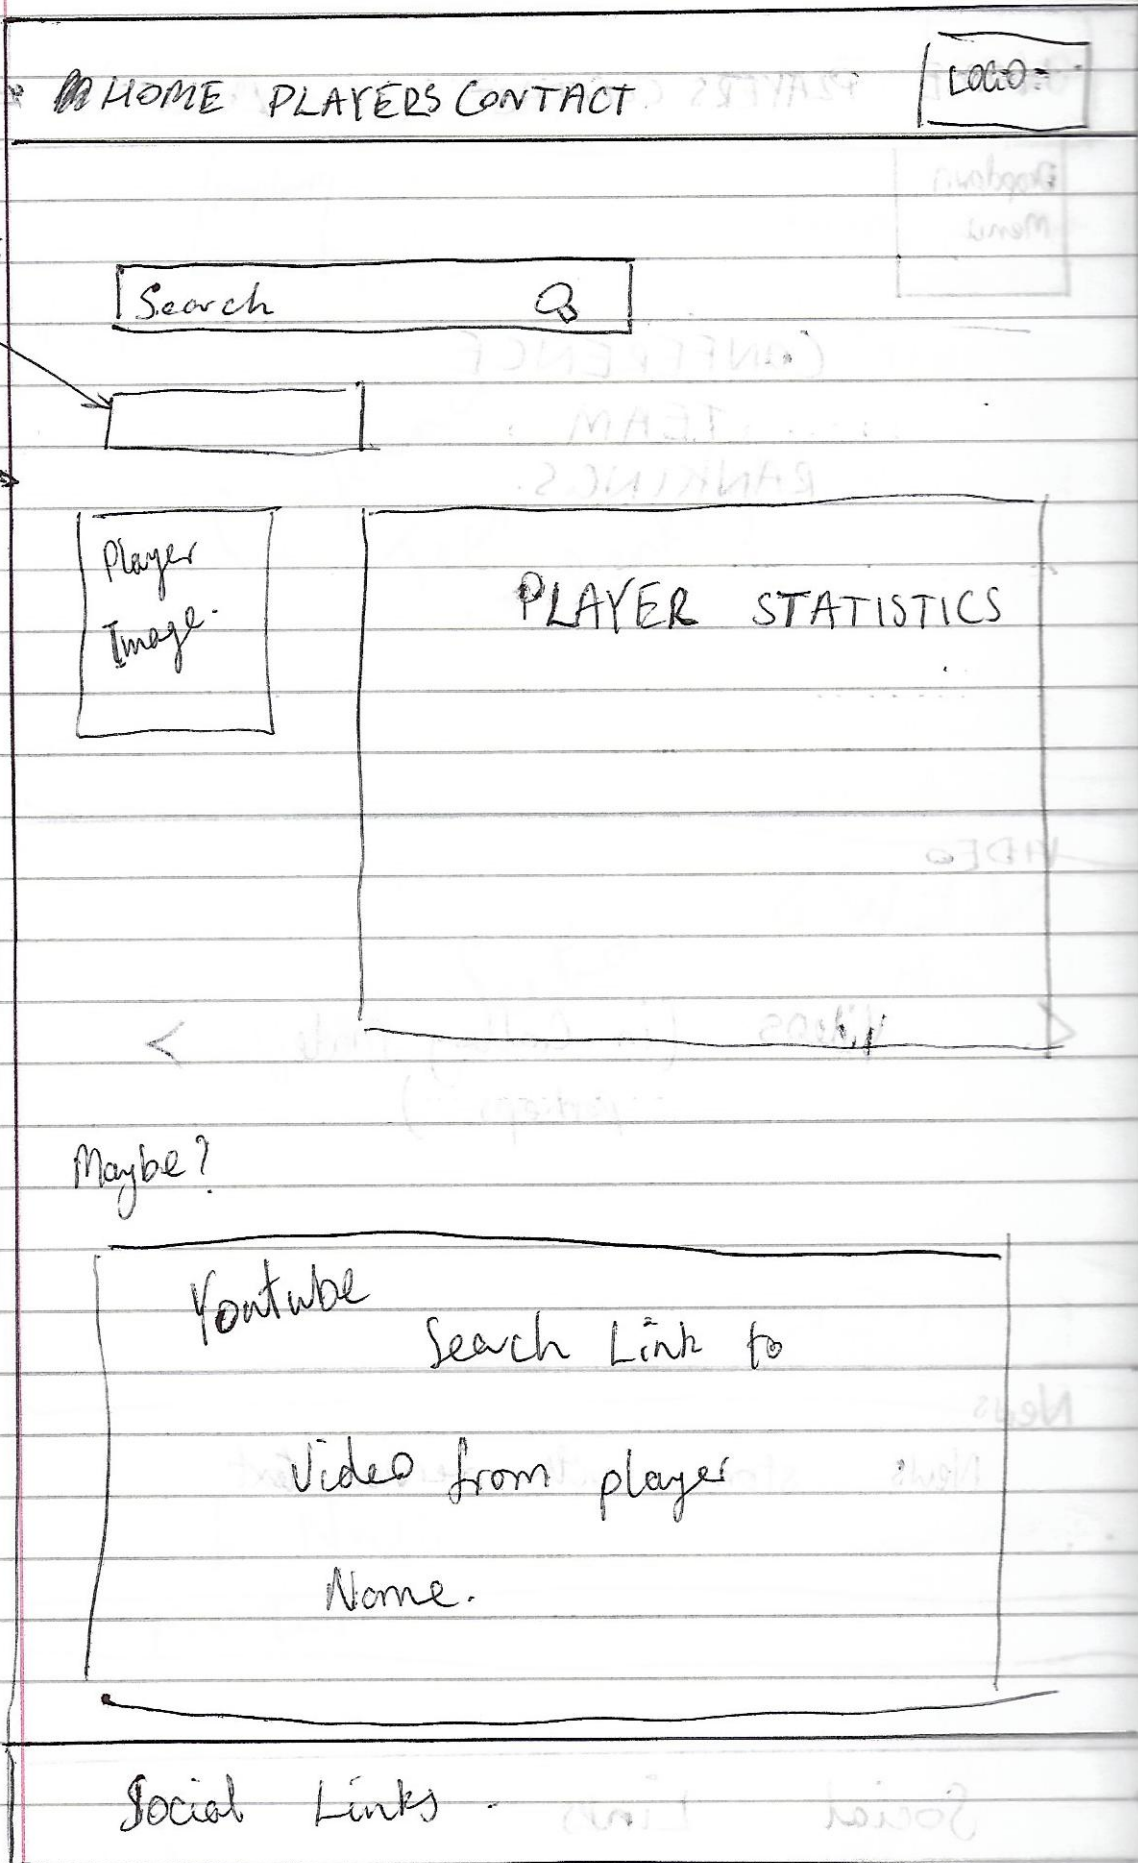 HOME PLAYERS CONTACT
LOGO
Search
Player
Image.
PLAYER STATISTICS
Maybe?
Youtube
Search Link to
Video from player
Name.
Social Links.